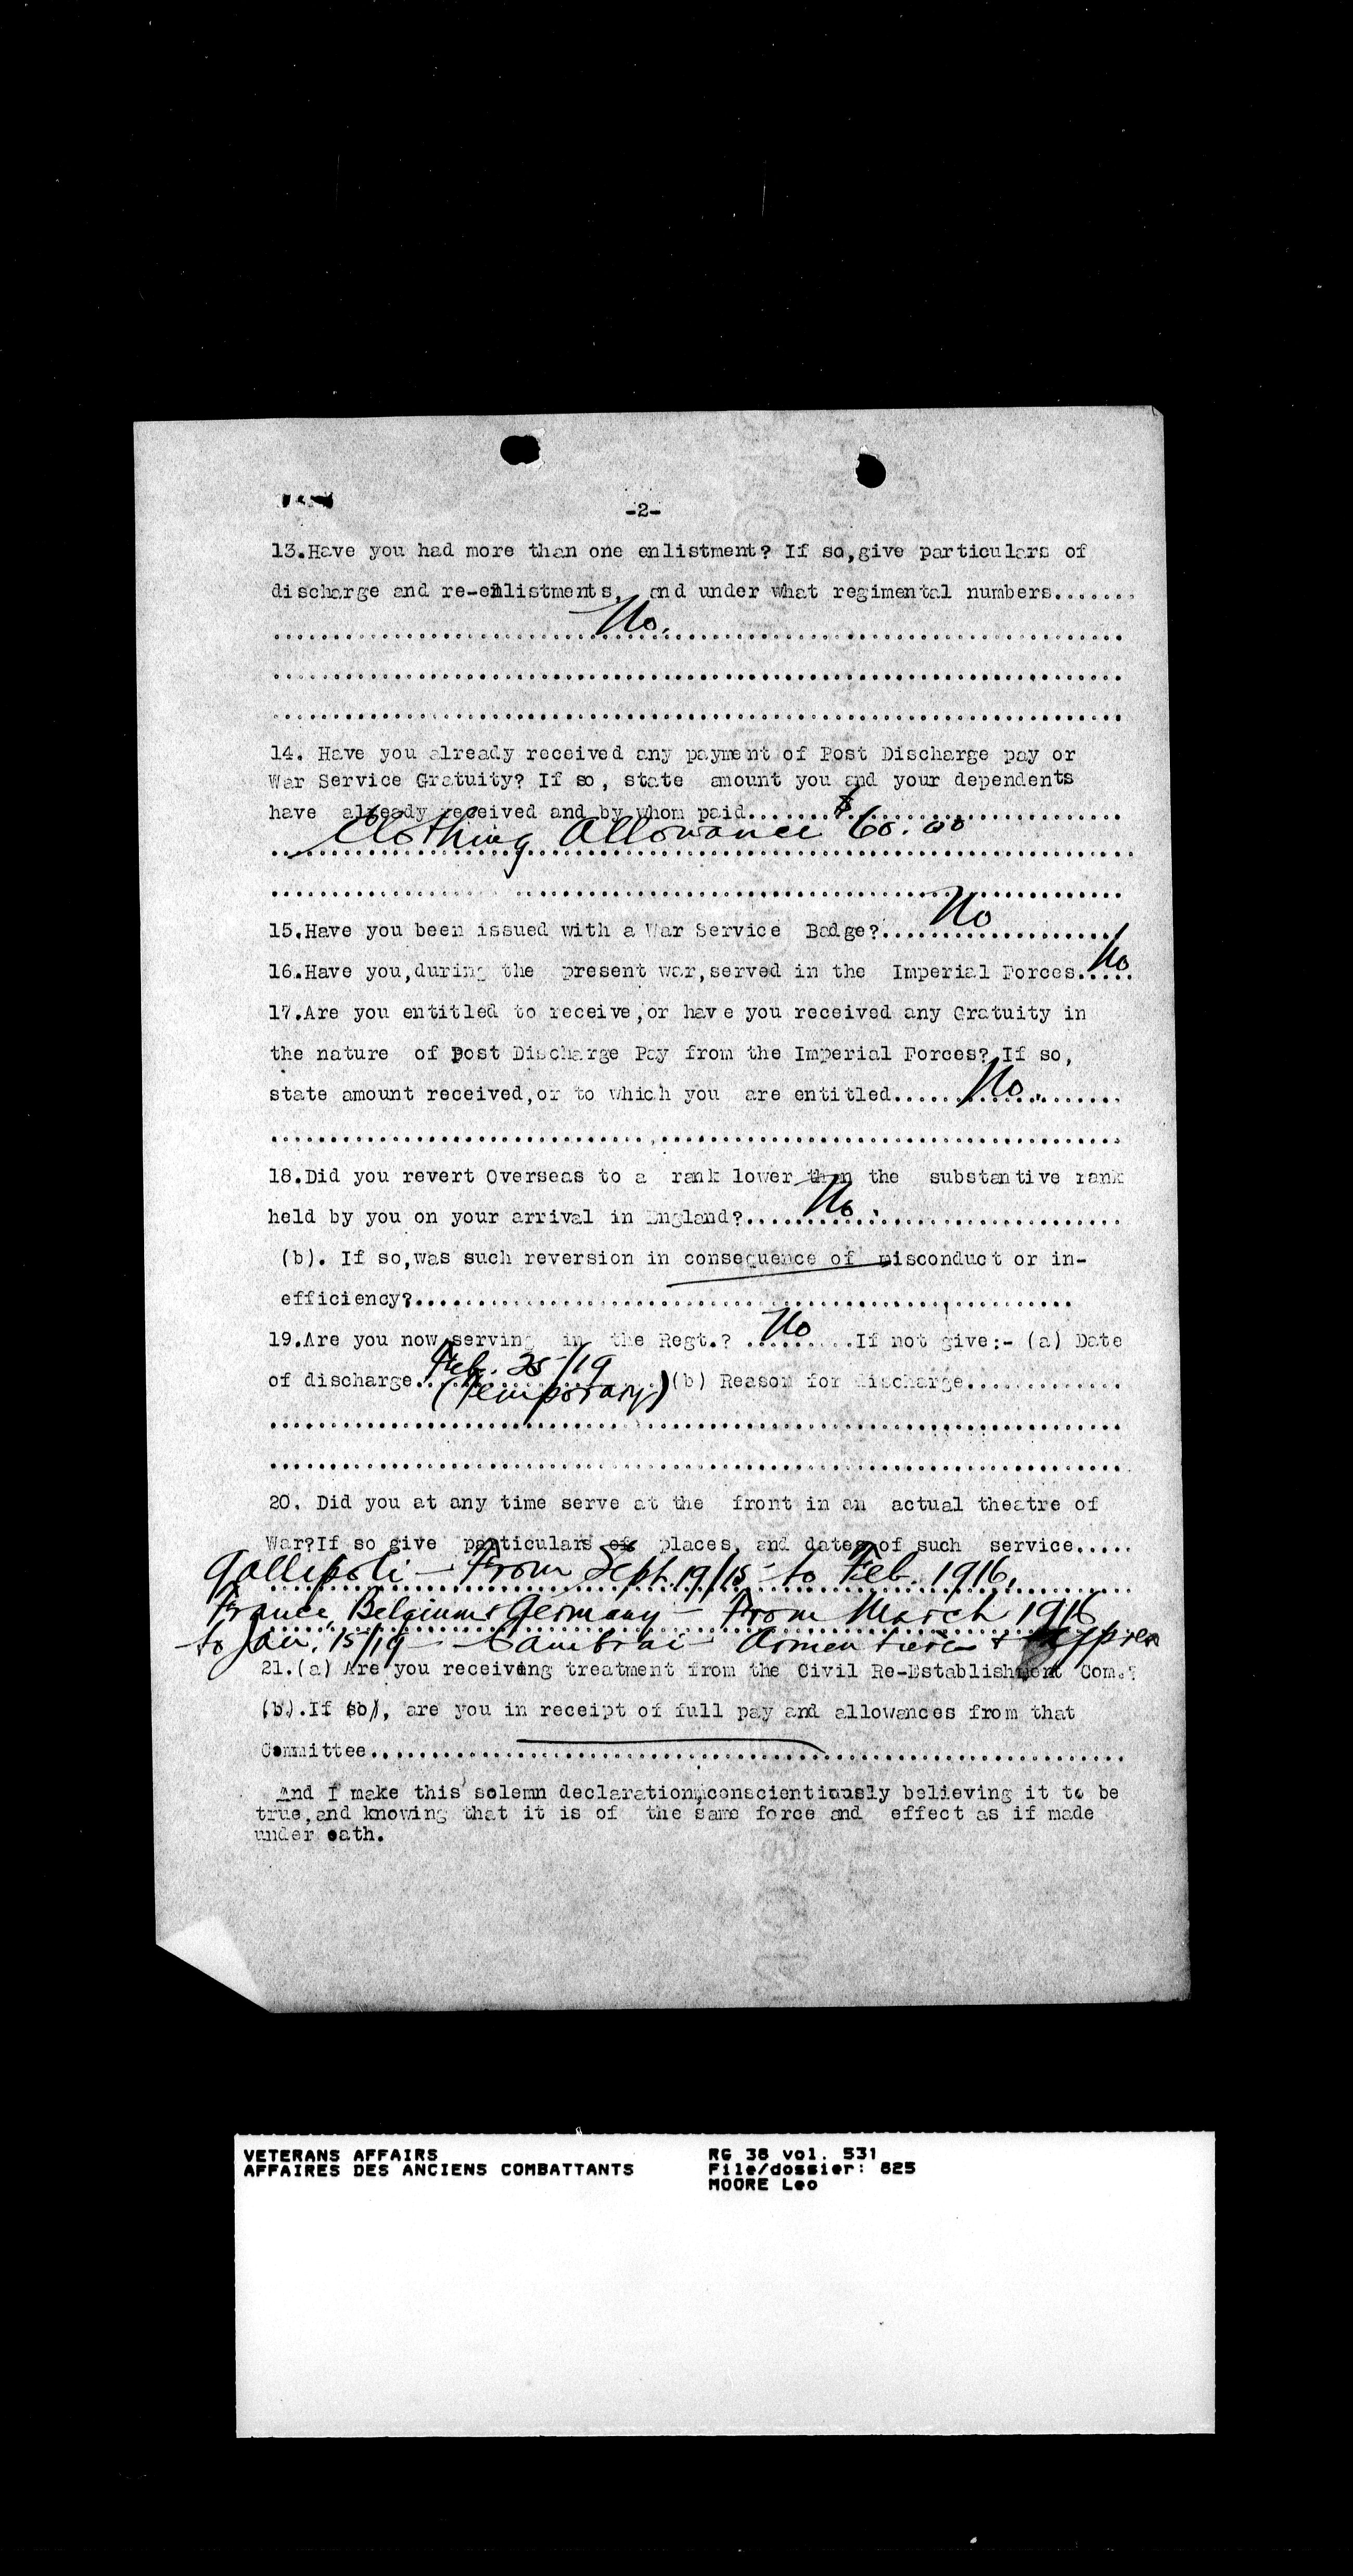 -2-
13.Have you had more than one enlistment? If so,give particulars of
discharge and re-enlistments, and under what regimental numbers.......
No.
14. Have you already received any payment of Post Discharge pay or
War Service Gratuity? If so, state amount you and your dependents
have already received and by whom paid.......
Clothing Allowance $60.00
15.Have you been issued with a War Service Badge?....No
16.Have you,during the present war,served in the Imperial Forces.No
17.Are you entitled to receive,or have you received any Gratuity in
the nature of Post Discharge Pay from the Imperial Forces? If so,
state amount received,or to which you are entitled......No.
18.Did you revert Overseas to a rank lower than the substantive rank
held by you on your arrival in England?....No.
(b). If so,was such reversion in consequence of misconduct or in-
efficiency?....
19.Are you now serving in the Regt.? No ....If not give:- (a) Date
of discharge..Feb. 25/19 (b) Reason for discharge.............
(Temporary)
20. Did you at any time serve at the front in an actual theatre of
War?If so give particulars of places, and dates of such service.....
Gallipoli - From Sept. 19/15 to Feb. 1916.
France, Belgium & Germany - From March 1916
to Jan. 15/19 - Cambrai - Armentieres & Ypres
21.(a) Are you receiving treatment from the Civil Re-Establishment Com.?
(b).If so, are you in receipt of full pay and allowances from that
Committee....
And I make this solemn declaration,conscientiously believing it to be
true,and knowing that it is of the same force and effect as if made
under oath.
VETERANS AFFAIRS RG 38 vol. 531
AFFAIRES DES ANCIENS COMBATTANTS File/dossier: 825
MOORE Leo